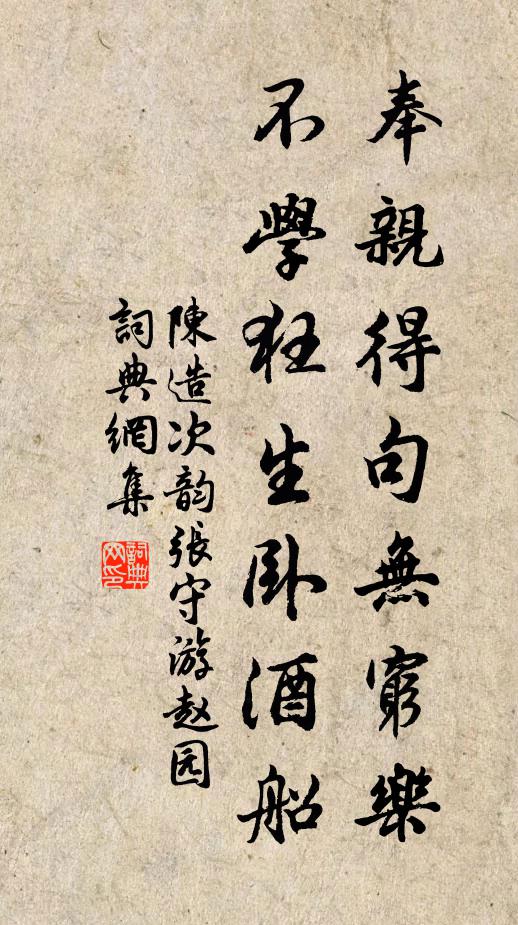 奉親得句無窮樂
不學狂生卧酒船
陳造次韵張守游赵园
詞典網集
詞典網印